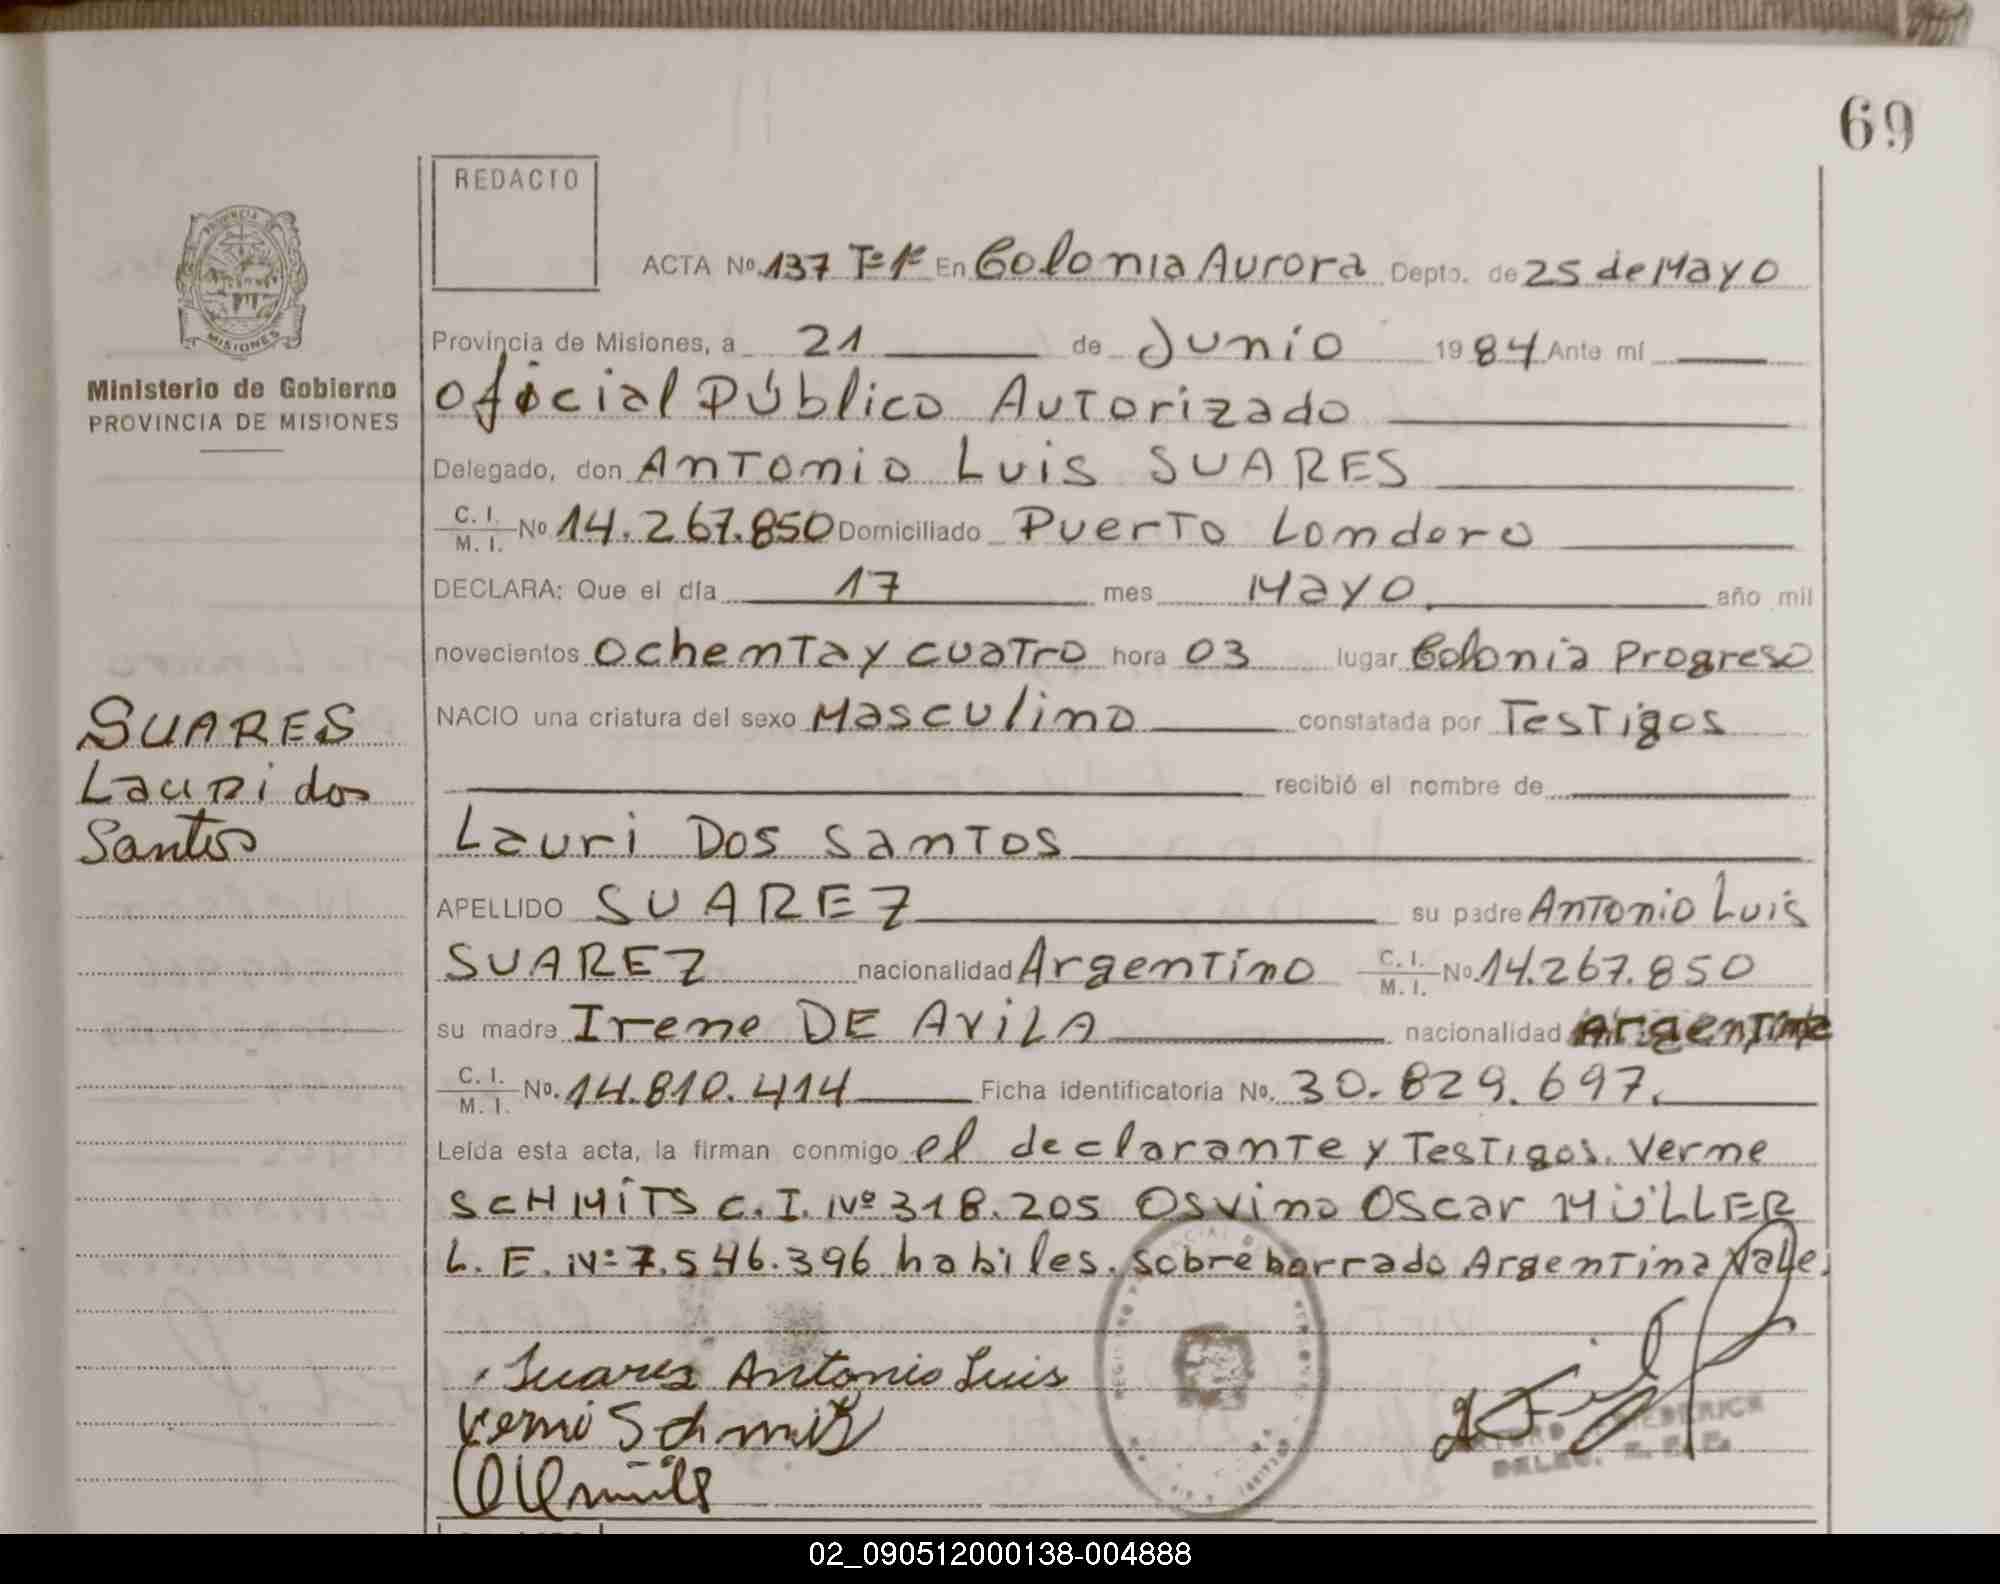 69
REDACTO
ACTA No. 137 Tº 1º En Colonia Aurora Depto. de 25 de Mayo
PROVINCIA
MISIONES
Ministerio de Gobierno
PROVINCIA DE MISIONES
Provincia de Misiones, a 21 de Junio 1984 Ante mí
oficial Público Autorizado
Delegado, don Antonio Luis SUARES
C. I. / M. I. No 14.267.850 Domiciliado Puerto Londero
DECLARA: Que el día 17 mes Mayo. año mil
novecientos Ochenta y cuatro hora 03 lugar Colonia Progreso
NACIO una criatura del sexo Masculino constatada por Testigos
recibió el nombre de
Lauri Dos Santos
APELLIDO SUAREZ su padre Antonio Luis
SUAREZ nacionalidad Argentino C. I. / M. I. No. 14.267.850
su madre Irene DE AVILA nacionalidad Argentina
C. I. / M. I. No. 14.810.414 Ficha identificatoria No. 30.829.697.
Leída esta acta, la firman conmigo el declarante y Testigos. Verne
SCHMITS C.I. Nº 318.205 Osvino Oscar MÜLLER
L.E. Nº 7.546.396 habiles. Sobreborrado Argentina Vale.
SUARES
Lauri dos
Santos
Suarez Antonio Luis
Verni Schmitz
02_090512000138-004888